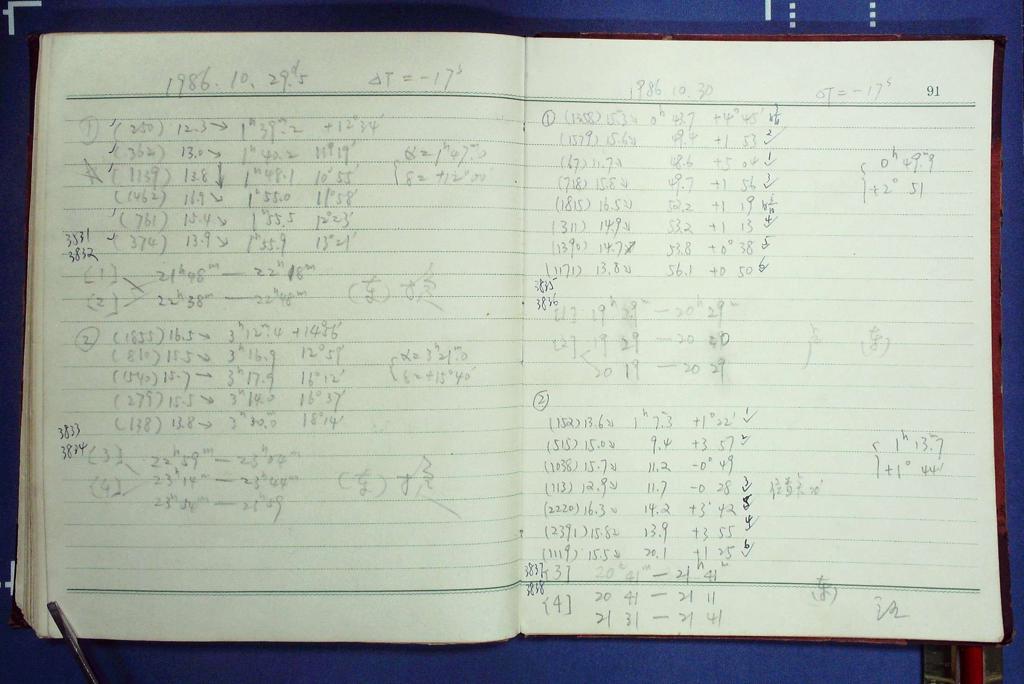 1986.10.29.5 ΔT = -17ˢ
① (250) 12.3 1ʰ39ᵐ.2 +12°34′
(362) 13.0 1ʰ40.2 11°19′
(1139) 13.8 1ʰ48.1 10°55′
α=1ʰ47ᵐ.0
δ=+12°00′
(1462) 16.9 1ʰ55.0 11°58′
(761) 15.4 1ʰ55.5 12°23′
(374) 13.9 1ʰ55.9 13°21′
3831
3832
[1] 21ʰ48ᵐ — 22ʰ18ᵐ
[2] 22ʰ38ᵐ — 22ʰ48ᵐ
(东)
② (1855) 16.5 3ʰ12ᵐ.4 +14°56′
(810) 15.5 3ʰ16.9 12°59′
(1540) 15.7 3ʰ17.9 16°12′
α=3ʰ21ᵐ.0
δ=+15°40′
(279) 15.5 3ʰ14.0 16°37′
(138) 13.8 3ʰ30.0 18°14′
3833
3834
[3] 22ʰ59ᵐ — 23ʰ04ᵐ
[4] 23ʰ14ᵐ — 23ʰ44ᵐ
(东)
23ʰ54ᵐ — 23ʰ59
1986.10.30 ΔT = -17ˢ 91
① (1358) 15.3 0ʰ 43.7 +4°45′
(1579) 15.6 49.4 +1 53 2
(67) 11.7 48.6 +5 04 1
(718) 15.8 49.7 +1 56 3
0ʰ49ᵐ.9
+2° 51
(1815) 16.5 52.2 +1 19
(311) 14.9 53.2 +1 13 4
(1390) 14.7 53.8 +0°38 5
(1171) 13.8 56.1 +0 50 6
3835
3836
[1] 19ʰ29ᵐ — 20ʰ29ᵐ
[2] 19 29 — 20
20 19 — 20 29
(东)
②
(152) 13.6 1ʰ7.3 +1°22′ 1
(515) 15.0 9.4 +3 57
(1038) 15.7 11.2 -0°49
1ʰ13ᵐ.7
+1° 44′
(113) 12.9 11.7 -0 28 3
(2220) 16.3 14.2 +3 42
(2391) 15.8 13.9 +3 55 4
(1119) 15.5 20.1 +1 25 6
3837
3838
[3] 20ʰ41ᵐ — 21ʰ41ᵐ
[4] 20 41 — 21 11
(东)
21 31 — 21 41